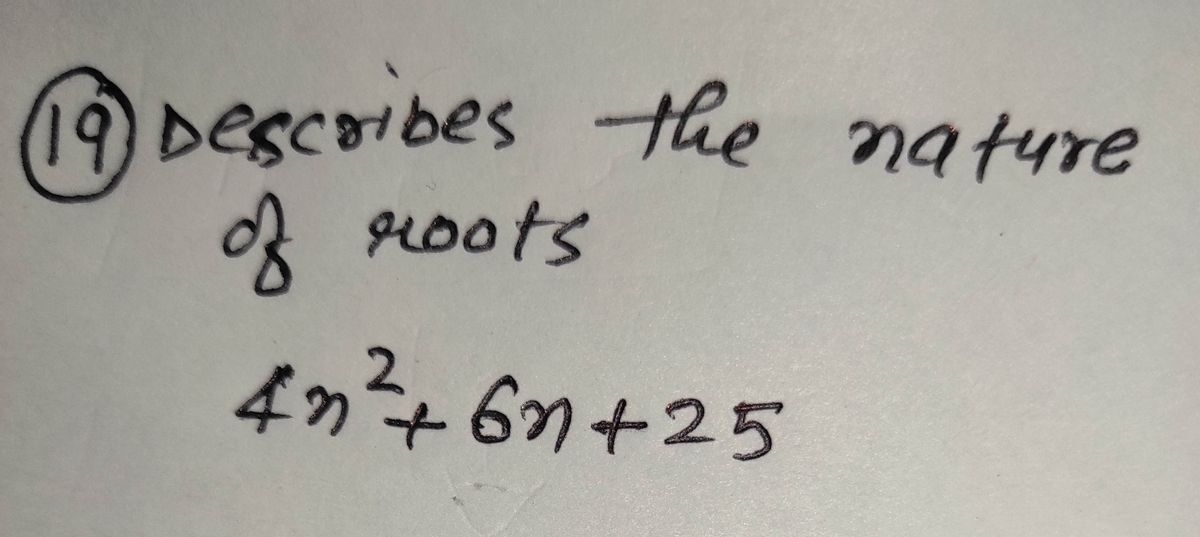 19 Describes the nature
of roots
4x²+6x+25